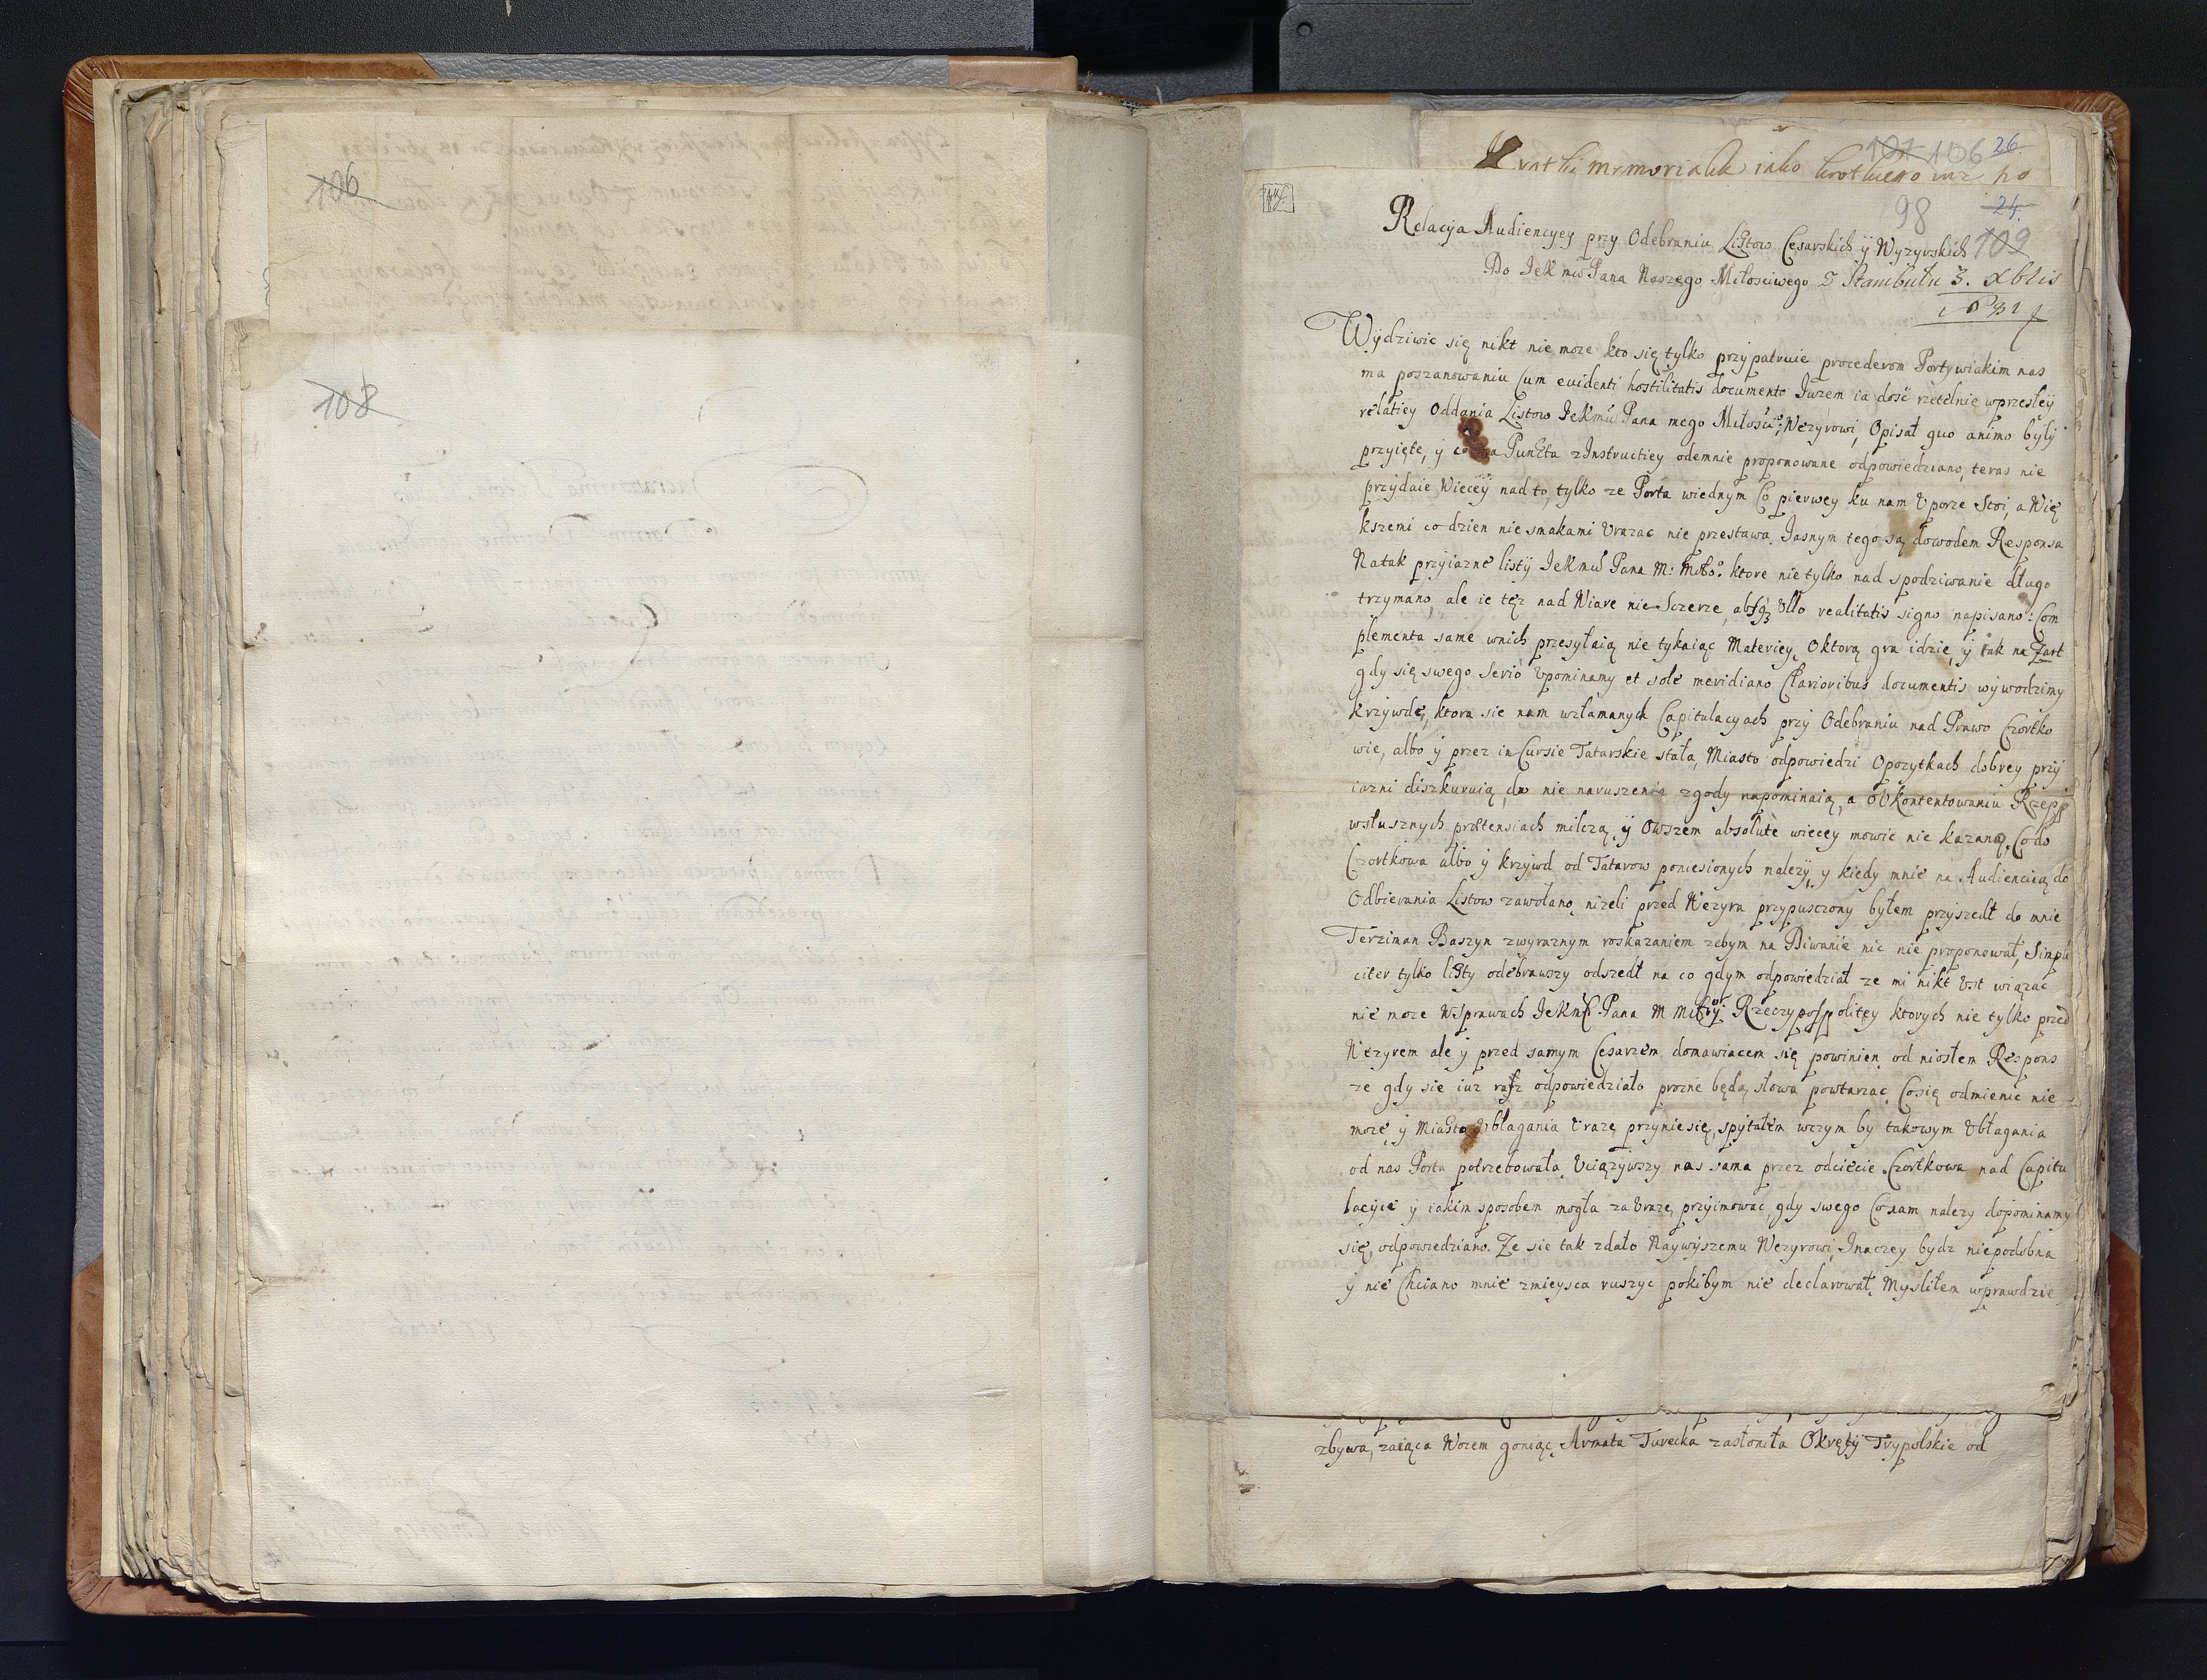 106
108
101 106 26
98 24.
109
Relacya Audiencyey przy Odebraniu Listow Cesarskich ÿ Wyzyrskich
Do JeKmśi Pana Naszego Miłosciwego z Stambułu 3. Xblis
Wydziwic się nikt nie moze kto się tylko przypatruie procederom Porty w iakim nas
ma poszanowaniu Cum euidenti hostilitatis documento Juzem ia dość rzetelnie w przesłeÿ
relatiey Oddania Listow JeKmśi Pana mego Miłości: Wezyrowi, Opisał quo animo byłÿ
przyięte, y co Puncta z Instructiey odemnie proponowane odpowiedziano, teras nie
przydaie Wieceÿ nad to, tylko ze Porta wiednym Co pierwey ku nam Vporze Stoi, a Wię
kszemi co dzien niesmakami Vrazac nie przestawa. Jasnym tego są dowodem Responsa
Na tak przyiazne listÿ JeKmśi Pana M: Miło: ktore nie tylko nad spodziwanie długo
trzymano, ale ie tęz nad Wiare nie Sczerze, absq3 Vllo realitatis signo napisano: Com
plementa same wnich przesyłaią nie tykaiąc Materiey Oktorą gra idzie, ÿ iak na Zart
gdy się swego Serio Vpominamy et sole meridiano Clarioribus documentis wywodzimy
krzywdę, ktora sie nam w złamanych Capitulacyach przÿ Odebraniu nad Prawo Czortko
wie, albo ÿ przez inCursie Tatarskie stała, Miasto odpowiedzi Opozytkach dobrey przÿ
iazni diszkuruią, do nie naruszenia zgody napominaią, a o Vkontentowaniu Rzepp
wsłusznych prætensiach milczą, ÿ Owszem absolutè wiecey mowic nie kazano, Co do
Czortkowa albo ÿ krzywd od Tatarow poniesionych nalezÿ, y kiedy mnie na Audiencią do
Odbierania Listow zawołano, nizeli przed Wezyra przypusczony byłem przyszedł do mnie
Terziman Baszyn z wyraznym roskazaniem zebym na Diwanie nic nie proponował, Simpli
citer tylko listy odebrawszy odszedł na co gdym odpowiedział ze mi nikt Vst wiązac
nie moze W Sprawach JeKmśi Pana M Miło y Rzeczypospolitęy ktorych nie tylko przed
Wezyrem ale ÿ przed samym Cesarzem domawiacem się powinien od niosłem Respons
ze gdy sie iuz rasz odpowiedziało prozne będą słowa powtarzac, Co się odmienic nie
moze, ÿ Miasto Vbłagania Vrazę przyniesię, spytałem wczym by takowym Vbłagania
od nas Porta potrzebowała Vciązywszy nas sama przez odciecie Czortkowa nad Capitu
lacyie ÿ iakim sposobem mogła za Vrazę przyimowac, gdy swego Co nam nalezy dopominamy
się, odpowiedziano. Ze sie tak zdało Naywyszemu Wezyrowi, Inaczey bydz niepodobna
ÿ nie Chciano mnie zmieysca ruszyc pokibym nie declarował, Mysliłem wprawdzie
zbywa, zaiąca Wozem goniąc, Armata Turecka zasłoniła Okrętÿ Trypolskie od